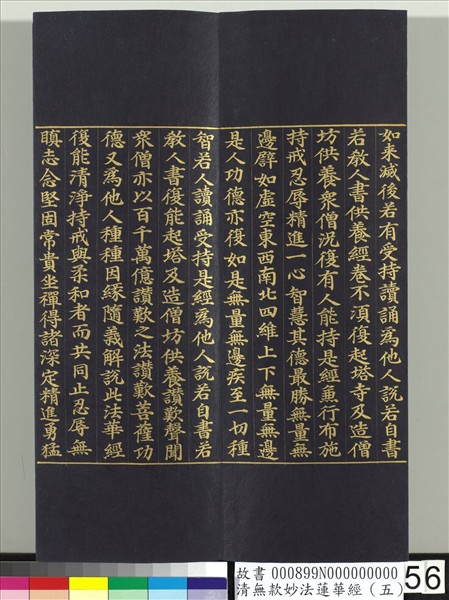 如来滅後若有受持讀誦為他人說若自書
若教人書供養經卷不須復起塔寺及造僧
坊供養衆僧況復有人能持是經兼行布施
持戒忍辱精進一心智慧其德最勝無量無
邊譬如虛空東西南北四維上下無量無邊
是人功德亦復如是無量無邊疾至一切種
智若人讀誦受持是經為他人說若自書若
教人書復能起塔及造僧坊供養讚歎聲聞
衆僧亦以百千萬億讚歎之法讚歎菩薩功
德又為他人種種因緣隨義解說此法華經
復能清淨持戒與柔和者而共同止忍辱無
瞋志念堅固常貴坐禪得諸深定精進勇猛
故書 000899N000000000
清無款妙法蓮華經（五）
56